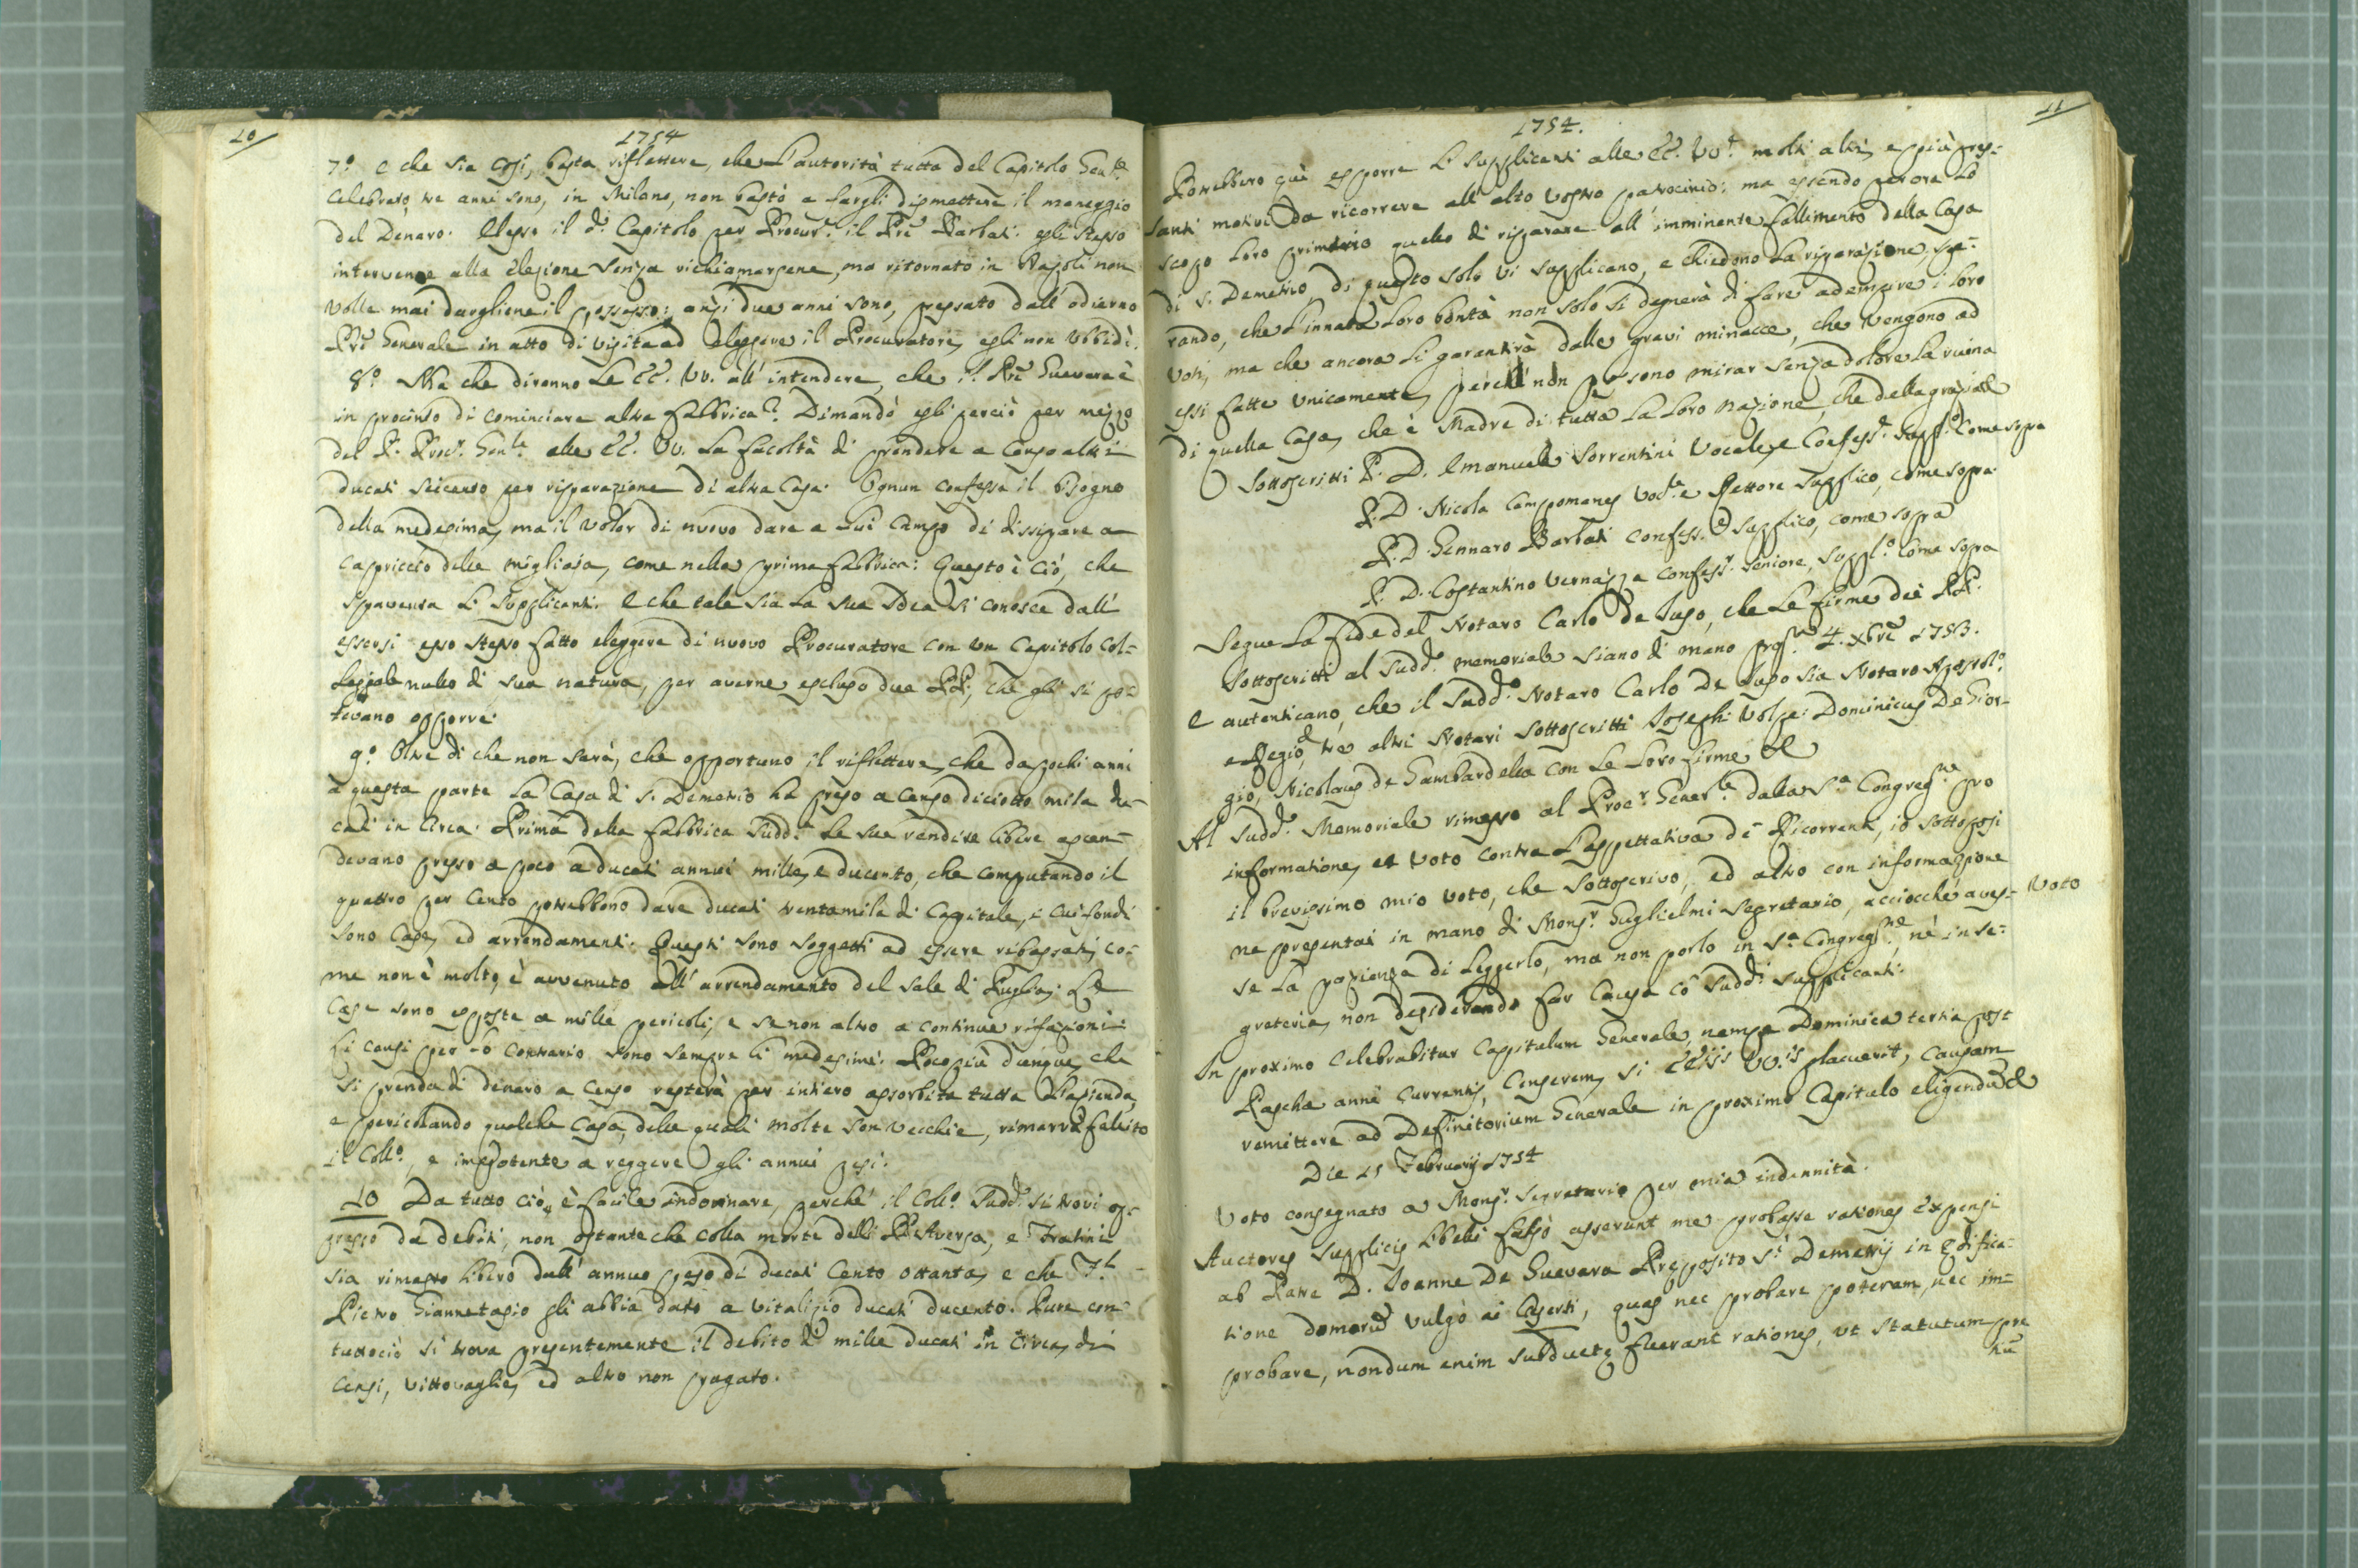 10
1754
7.º e che sia così, basta riflettere, che l'autorità tutta del Capitolo Gen.le
celebrato, tre anni sono, in Milano, non bastò a fargli dismettere il maneggio
del Denaro. Elesse il d.º Capitolo per Procur.e il Pre Barbati: egli stesso
intervenne alla elezione senza richiamarsene, ma ritornato in Napoli non
volle mai dargliene il possesso: anzi due anni sono, pressato dall'odierno
Pre Generale in atto di visita ad eleggere il Procuratore, egli non ubbidì.
8.º Ma che diranno le EE. VV. all'intendere, che il Pre Guevara è
in procinto di cominciare altra fabbrica? Dimandò egli perciò per mezzo
del P. Proc.r Gen.le alle EE. VV. la facoltà di prendere a Censo altri
ducati seicento per risparazione di altra Casa. Ognun confessa il bisogno
della medesima, ma il voler di nuovo dare a lui campo di dissipare a
capriccio delle migliaja, come nella prima fabbrica: Questo è ciò, che
spaventa li Supplicanti. E che tale sia la sua Idea si conosce dall'
essersi esso stesso fatto eleggere di nuovo Procuratore con un Capitolo Col-
legiale nullo di sua natura, per averne escluso due PP., che gli si po-
tevano opporre.
9.º Oltre di che non sarà, che opportuno il riflettere, che da pochi anni
à questa parte la Casa di S. Demetrio ha preso a censo diciotto mila du-
cati in circa. Prima della fabbrica Sudd.a le sue rendite libere ascen-
devano presso a poco a ducati annui mille, e ducento, che computando il
quattro per cento potrebbono dare ducati trentamila di Capitale, i cui fondi
sono Case, ed arrendamenti. Questi sono soggetti ad essere ribassati, co-
me non è molto, è avvenuto all'arrendamento del sale di Puglia: Le
Case sono esposte a mille pericoli, e se non altro a continue rifazioni:
li censi per lo contrario sono sempre li medesimi. Poco più dunque, che
si prenda di denaro a Censo resterà per intiero assorbita tutta l'azienda,
e pericolando qualche Casa, delle quali molte son vecchie, rimarrà fallito
il Coll.º, e impotente a reggere gli annui pesi.
10 Da tutto ciò, è facile indovinare, perché il Coll.º Sudd.º si trovi op-
presso da debiti, non ostante che colla morte delli PP. Aversa, e Fratini
sia rimasto libero dall'annuo peso di ducati Cento ottanta, e che F.l
Pietro Giannetasio gli abbia dato a vitalizio ducati ducento. Pure con-
tuttociò si trova presentemente il debito di mille ducati in circa, di
Censi, vittovaglie, ed altro non pagato.
11
1754.
Potrebbero quì esporre li supplicanti alle EE. VV.e molti altri, e più pres-
santi motivi da ricorrere all'alto vostro patrocinio: ma essendo per ora lo
scopo loro primario quello di risparare all'imminente fallimento della Casa
di S. Demetrio, di questo solo vi supplicano, e chiedono la riparazione, spe-
rando, che l'innata Loro bontà non solo si degnerà di fare adempire i loro
voti, ma che ancora li garantirà dalle gravi minacce, che vengono ad
essi fatte unicamente, perché non possono mirar senza dolore la ruina
di quella Casa, che è Madre di tutta la Loro Nazione, che della grazia &
Sottoscritti P. D. Emanuele Sorrentini Vocale, e Confess.r Suppl.º come sopra
P. D. Nicola Campomanes Voc.le e Rettore supplico, come sopra.
P. D. Gennaro Barbati Confess.e supplico, come sopra
P. D. Costantino Vernazza Confess.r seniore, suppl.º come sopra
Segue la fide del Notaro Carlo de Lupo, che le firme dei PP.
Sottoscritti al Sudd.º memoriale siano di mano prop.a 4. Xbre 1753.
E autenticano, che il Sudd.º Notaro Carlo De Lupo sia Notaro Apostol.º
e Regio, tre altri Notari sottoscritti Joseph Volpe: Dominicus De Gior-
gio, Nicolaus de Gambardella con le Loro firme &
Al Sudd.º Memoriale rimesso al Proc.r Gener.le dalla S.a Congreg.ne pro
informatione, et voto contra l'aspettativa dè Ricorrenti, io sottoposi
il brevissimo mio voto, che sottoscrivo, ed altro con informazione
ne presentai in mano di Mons.r Guglielmi Segretario, acciocché aves-
Voto
se la pazienza di leggerlo, ma non porlo in S.a Congreg.ne, nè in se-
greteria, non desiderando far causa cò Sudd.i Supplicanti.
In proximo celebrabitur Capitulum Generale, nempe Dominica tertia post
Pascha anni currentis, censerem, si EEiis VV.is placuerit, causam
remittere ad Definitorium Generale in proximo Capitulo eligendũ &
Die 15 Februarij 1754
Voto consegnato a Mons.r Segretario per mia indennità.
Auctores supplicis libelli falsò asserunt me probasse rationes expensi
ab Patre D. Joanne De Guevara Præposito S.i Demetrij in ædifica-
tione domorũ vulgò ai Caserti, quas nec probare poteram, nec im-
probare, nondum enim subductę fuerant rationes, ut statutum pre
nũ